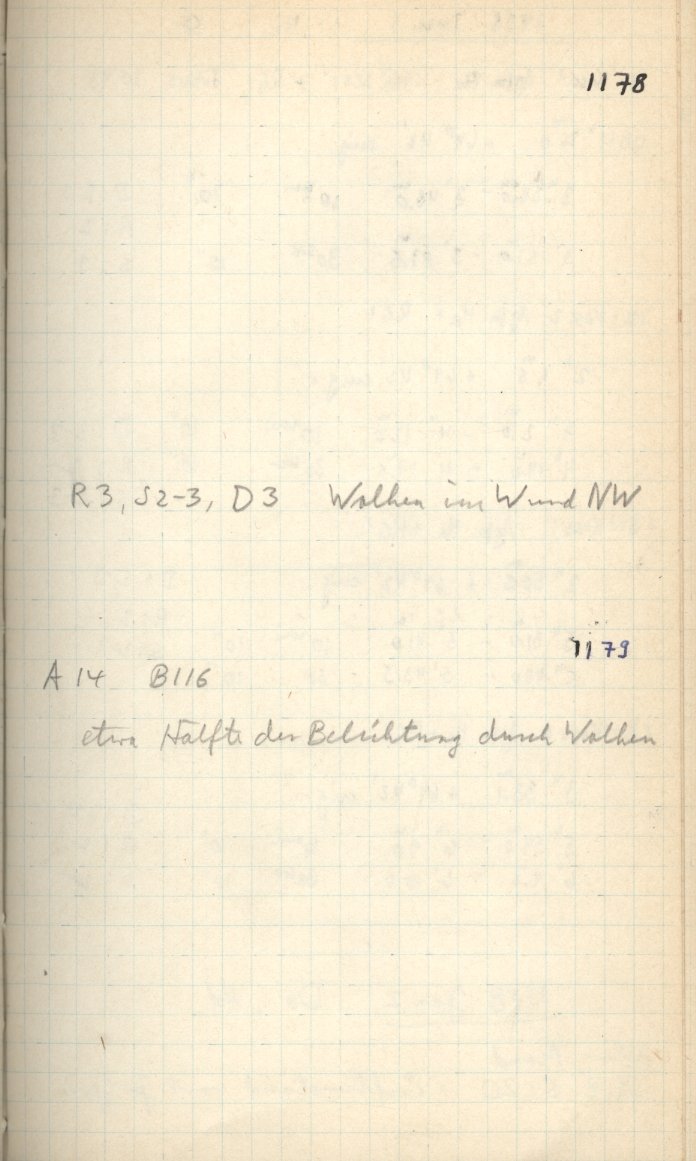 1178
R3, S2-3, D3 Wolken im W und NW
1179
A 14 B116
etwa Hälfte der Belichtung durch Wolken